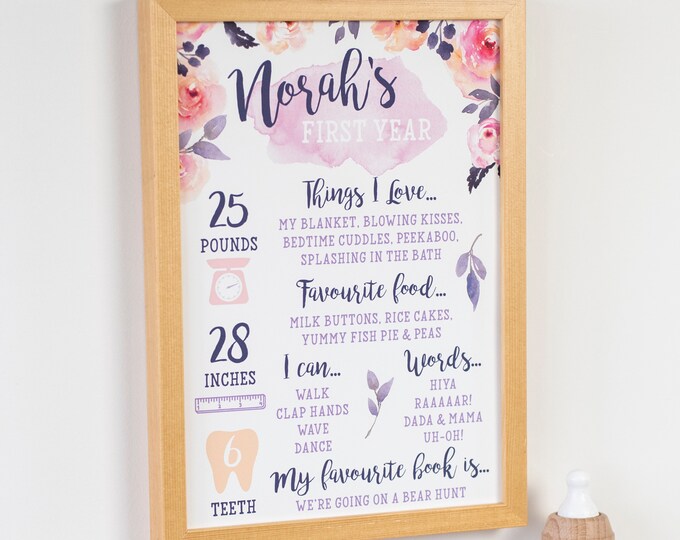 Norah's
FIRST YEAR
25
POUNDS
Things I Love...
MY BLANKET, BLOWING KISSES,
BEDTIME CUDDLES, PEEKABOO,
SPLASHING IN THE BATH
Favourite food...
MILK BUTTONS, RICE CAKES,
YUMMY FISH PIE & PEAS
28
INCHES
I can...
WALK
CLAP HANDS
WAVE
DANCE
Words...
HIYA
RAAAAAR!
DADA & MAMA
UH-OH!
6
TEETH
My favourite book is...
WE'RE GOING ON A BEAR HUNT